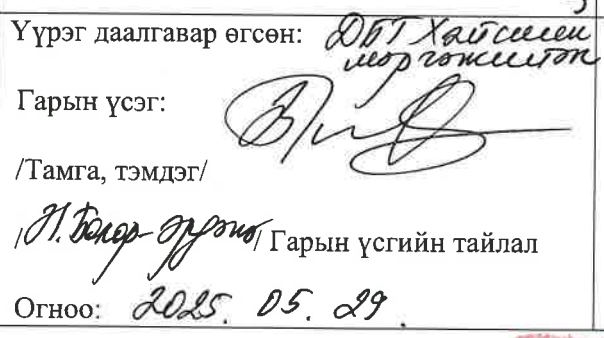 Үүрэг даалгавар өгсөн: ДБТ
мэргэжилтэн
Гарын үсэг:
/Тамга, тэмдэг/
/Н. Болор-Эрдэнэ/ Гарын үсгийн тайлал
Огноо: 2025. 05. 29